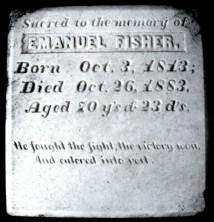 Sacred to the memory of
EMANUEL FISHER,
Born Oct. 3, 1813;
Died Oct. 26, 1883.
Aged 70 y's & 23 d's.
He fought the fight, the victory won,
And entered into rest.